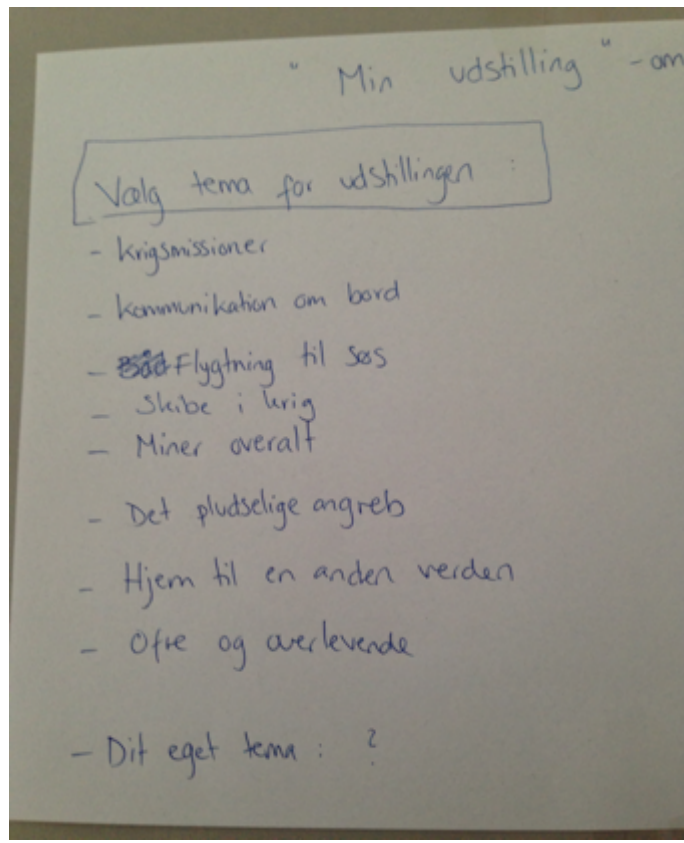 " Min udstilling " - om
Vælg tema for udstillingen :
- Krigsmissioner
- kommunikation om bord
- Flygtning til søs
- Skibe i krig
- Miner overalt
- Det pludselige angreb
- Hjem til en anden verden
- Ofre og overlevende
- Dit eget tema : ?